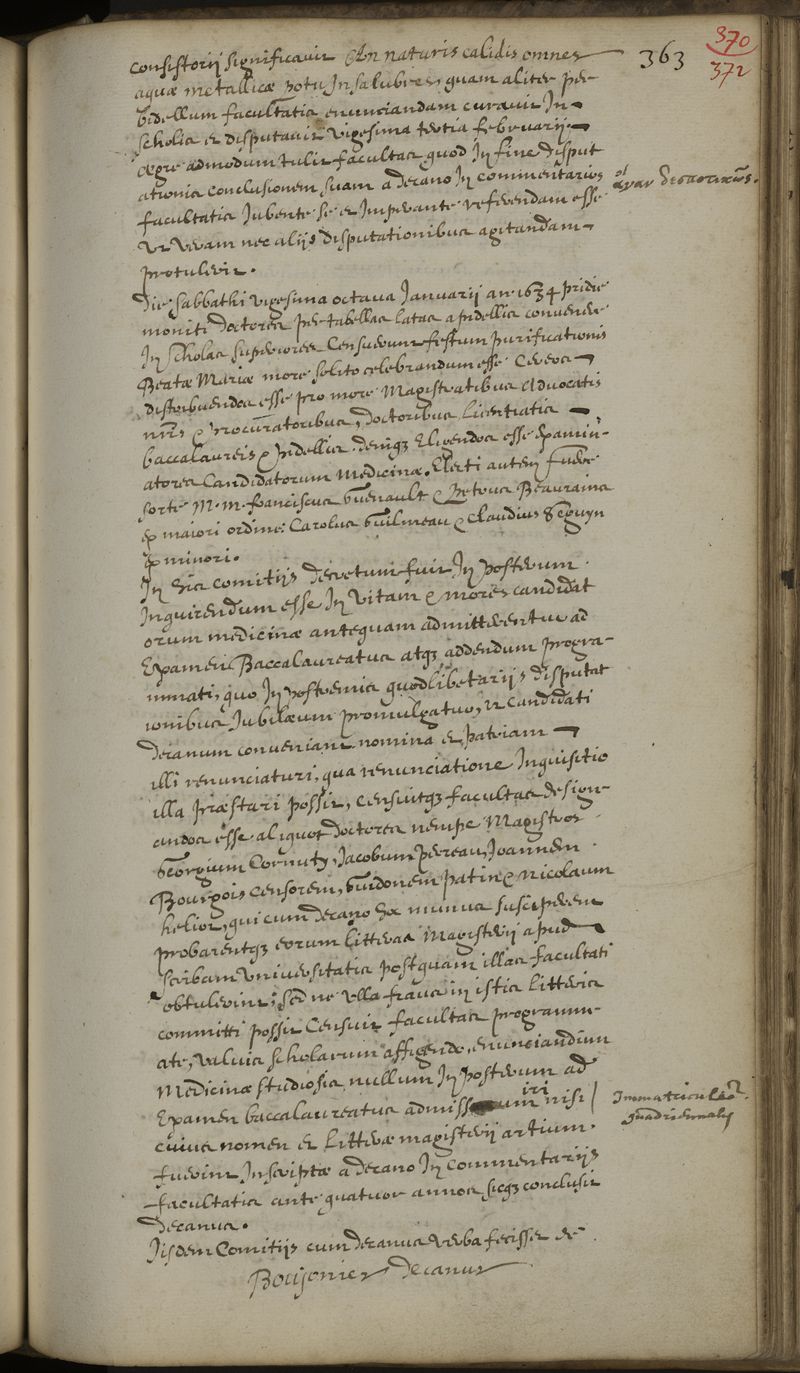 363
370
372
consistorij significavit An naturis calidis omnes
aquæ metallicæ potu Insalubres, quam aliter per
bidellum facultatis enunciandam curavit In
scholis et disputavit vigesima tertia februarij.
ægre admodum tulit facultas quod In fine disput
ationis conclusionem suam a decano In commentarios
facultatis Iubente se et Imperante referendam esse
ut veram nec alijs disputationibus agitandam
protulerit.
Die sabbathi vigesima octava Januarij an. 1634 pridie
moniti doctores per tabellas latas a bidellis convenere
In scholas superiores Censuerunt festum purificationis
Beatæ Mariæ more solito celebrandum esse Cereos
distribuendos esse pro more Magistratibus Advocatis
nris et procuratoribus, doctoribus licentiatis
baccalaureis et bidellis. deniq; Eligendos esse Examin-
atores Candidatorum Medicinæ. Electi autem fuere
sorte M. M. franciscus Guenault et Petrus Beaurains
ex maiori ordine: Carolus Guilmeau et Claudius Seguyn
ex minori.
In his comitijs decretum fuit In posterum
Inquirendum esse In vitam et mores candidat
orum medicinæ antequam admitterentur ad
Examen Baccalaureatus atq; addendum progra-
mmati, quo In postremis quodlibetarijs disputat
ionibus Iubilæum promulgatur, ut candidati
decanum conveniant nomina et patriam
illi renunciaturi, qua renunciatione Inquisitio
illa præstari possit, censuitq; facultas design-
andos esse aliquot doctores nempe Magistros
Georgium Cornuty, Jacobum Perreau, Joannem
Bourgois censorem, Guidonem patin et Nicolaum
heliot, qui cum decano hoc munus susciperent
probarentq; eorum litteras Magisterij apud
scribam universitatis postquam illas facultati
obtulerint; sed ne ulla fraus in istis litteris
committi possit Censuit facultas programm-
ate, valvis scholarum affigendo, enunciandum
Medicinæ studiosis nullum In posterum ad
Examen baccalaureatus admissum iri nisi
cuius nomen et litteræ magisterij artium
fuerint Inscriptæ a decano In commentarijs
facultatis ante quatuor annos sicq; conclusit
decanus.
Iisdem Comitijs cum decanus verba fecisset de
Boujonier decanus
Immatriculaõ
quadriennalis